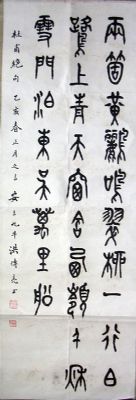 兩箇黃鸝鳴翠柳一行白
鷺上青天窗含西嶺千秋
雪門泊東吳萬里船
杜甫絕句 乙亥春正月之吉